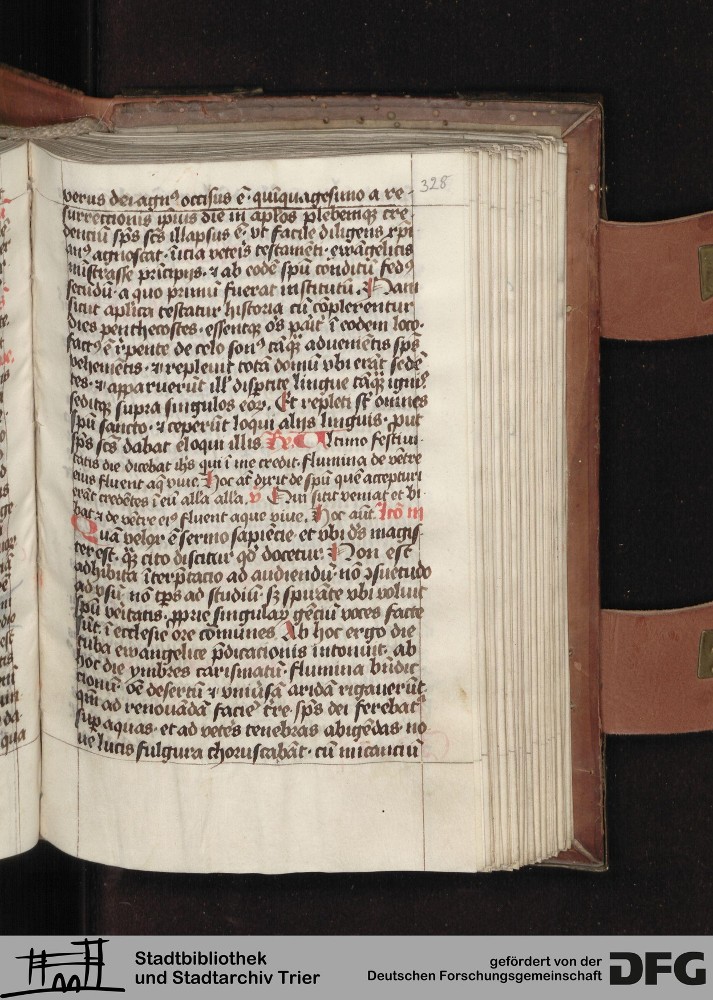 328
verus dei agn⁹ occisus ē· quīquagesimo a re-
surrectionis ip̄ius die in ap̄los plebemqꝫ cre
dentiū sp̄s sc̄s illapsus ē· vt facile diligens xp̄i
an⁹ agnoscat· īicia veteris testamēti· ewāgelicis
mīstrasse prīcipijs· ⁊ ab eodē sp̄u conditū fed⁹
secūdū· a quo primū fuerat institutū. Nam
sicut ap̄lica testatur historia cū cōplerentur
dies penthecostes· essentqꝫ oēs pariť ī eodem loco·
fact⁹ ē r̄pente de celo son⁹ tāqꝫ adueniētis sp̄s
vehemētis· ⁊ repleuit totā domū vbi erāt sedē
tes· ⁊ apparuerūt ill' disp̄tite lingue tāqꝫ ignis
seditqꝫ supra singulos eoꝝ. Et repleti sť omnes
sp̄u sancto· ⁊ ceperūt loqui alijs linguis· put
sp̄s sc̄s dabat eloqui illis R̸. Ultimo festiui
tatis die dicebat ih̄s qui ī me credit· flumina de vētre
eius fluent aq̄ viue. Hoc at̄ dixit de sp̄u quē accepturi
erāt credētes ī eū all'a all'a. v Qui sitit veniat et bi
bat ⁊ de vētre ei⁹ fluent aque viue. Hoc aūt. Lcō iii
Quā velox ē sermo sapiēcie· et vbi d̄s magis-
ter est· qꝫ cito discitur qđ docetur. Non est
adhibita īterp̄tacio ad audiendū· nō ɔsuetudo
ad vsū· nō tp̄s ad studiū· sꝫ spirāte vbi voluit
sp̄u veritatis· ꝓprie singulaꝝ gēciū voces facte
sūt· ī ecclesie ore cōmunes. Ab hoc ergo die
tuba ewangelice p̄dicacionis intonuit· ab
hoc die ymbres carismatū· flumina bn̄dic
cionū· oē desertū ⁊ vniūsā aridā rigauerūt·
qm̄ ad renouādā faciē tr̄e· sp̄s dei ferebať
sup̄ aquas· et ad veteˢ tenebras abigēdas· no
ue lucis fulgura choruscabāt· cū micanciū
Stadtbibliothek
und Stadtarchiv Trier
gefördert von der
Deutschen Forschungsgemeinschaft
DFG